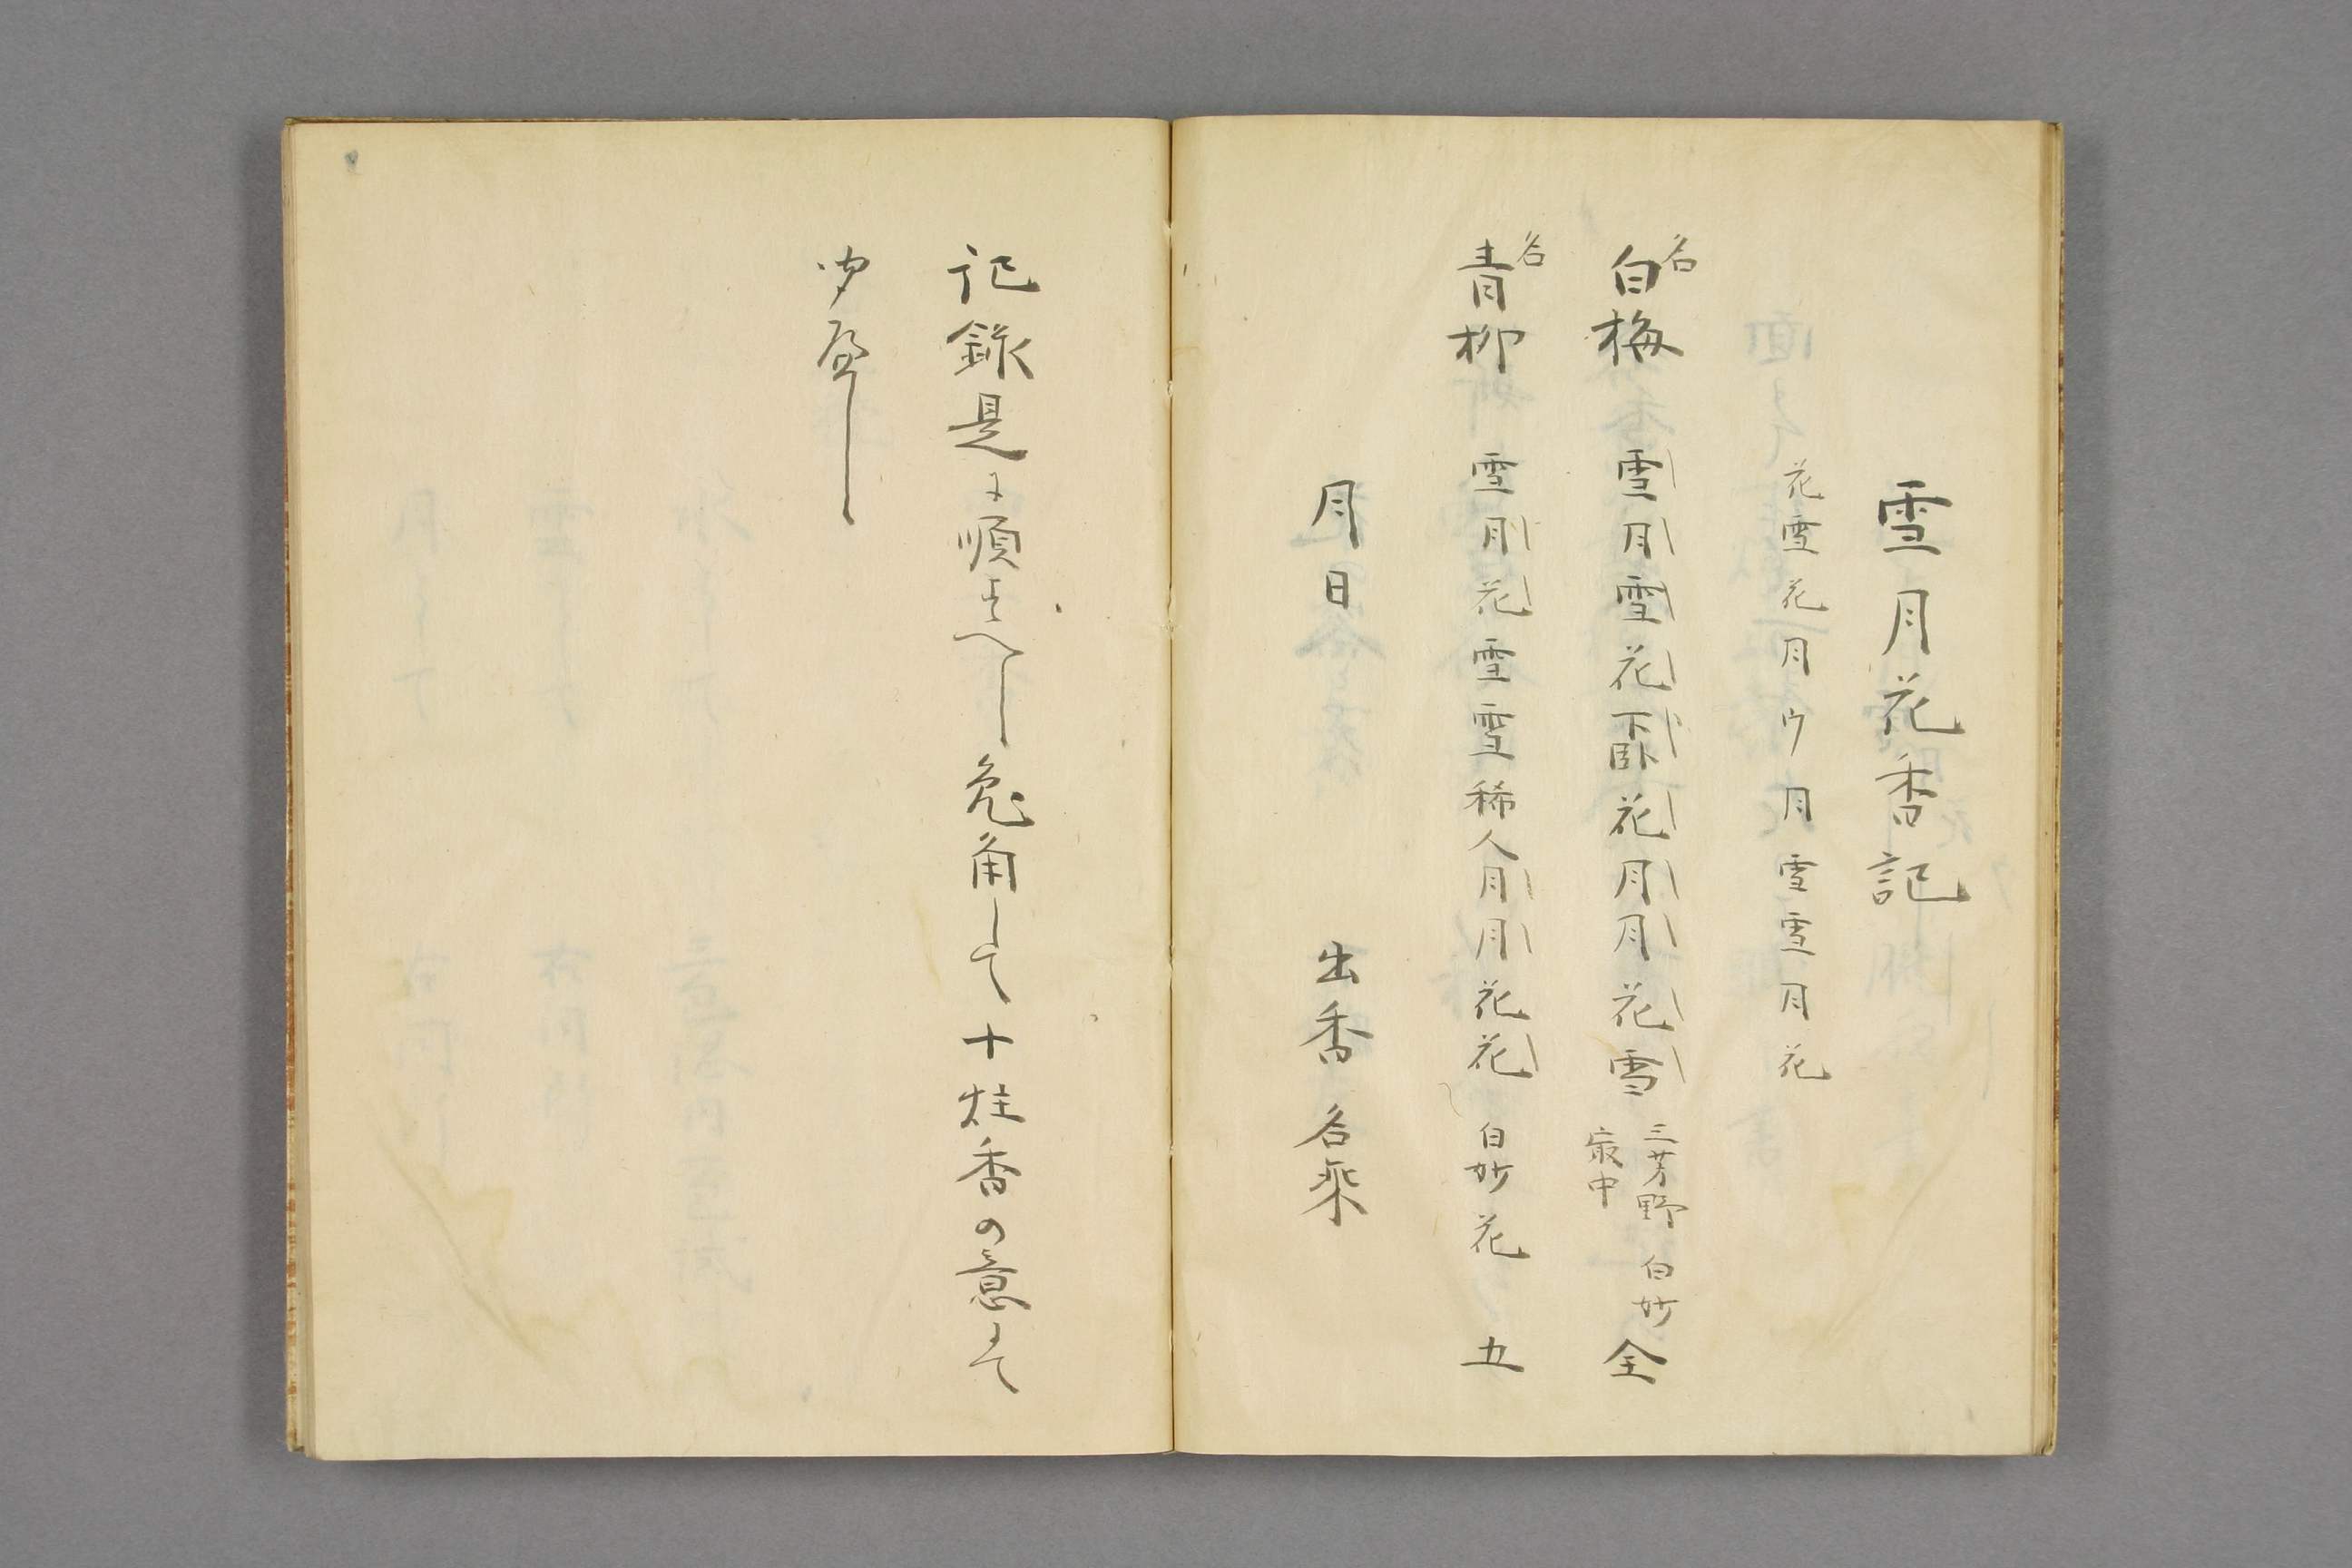 雪月花香記
花雪花月ウ月雪雪月花
名
白梅 雪月雪花下臥花月月花雪 三芳野 白妙 全
最中
名
青柳 雪月花雪雪稀人月月花花 白妙花 五
月日 出香 名乗
記録是に順ふへし兎角して十炷香の意にて
聞